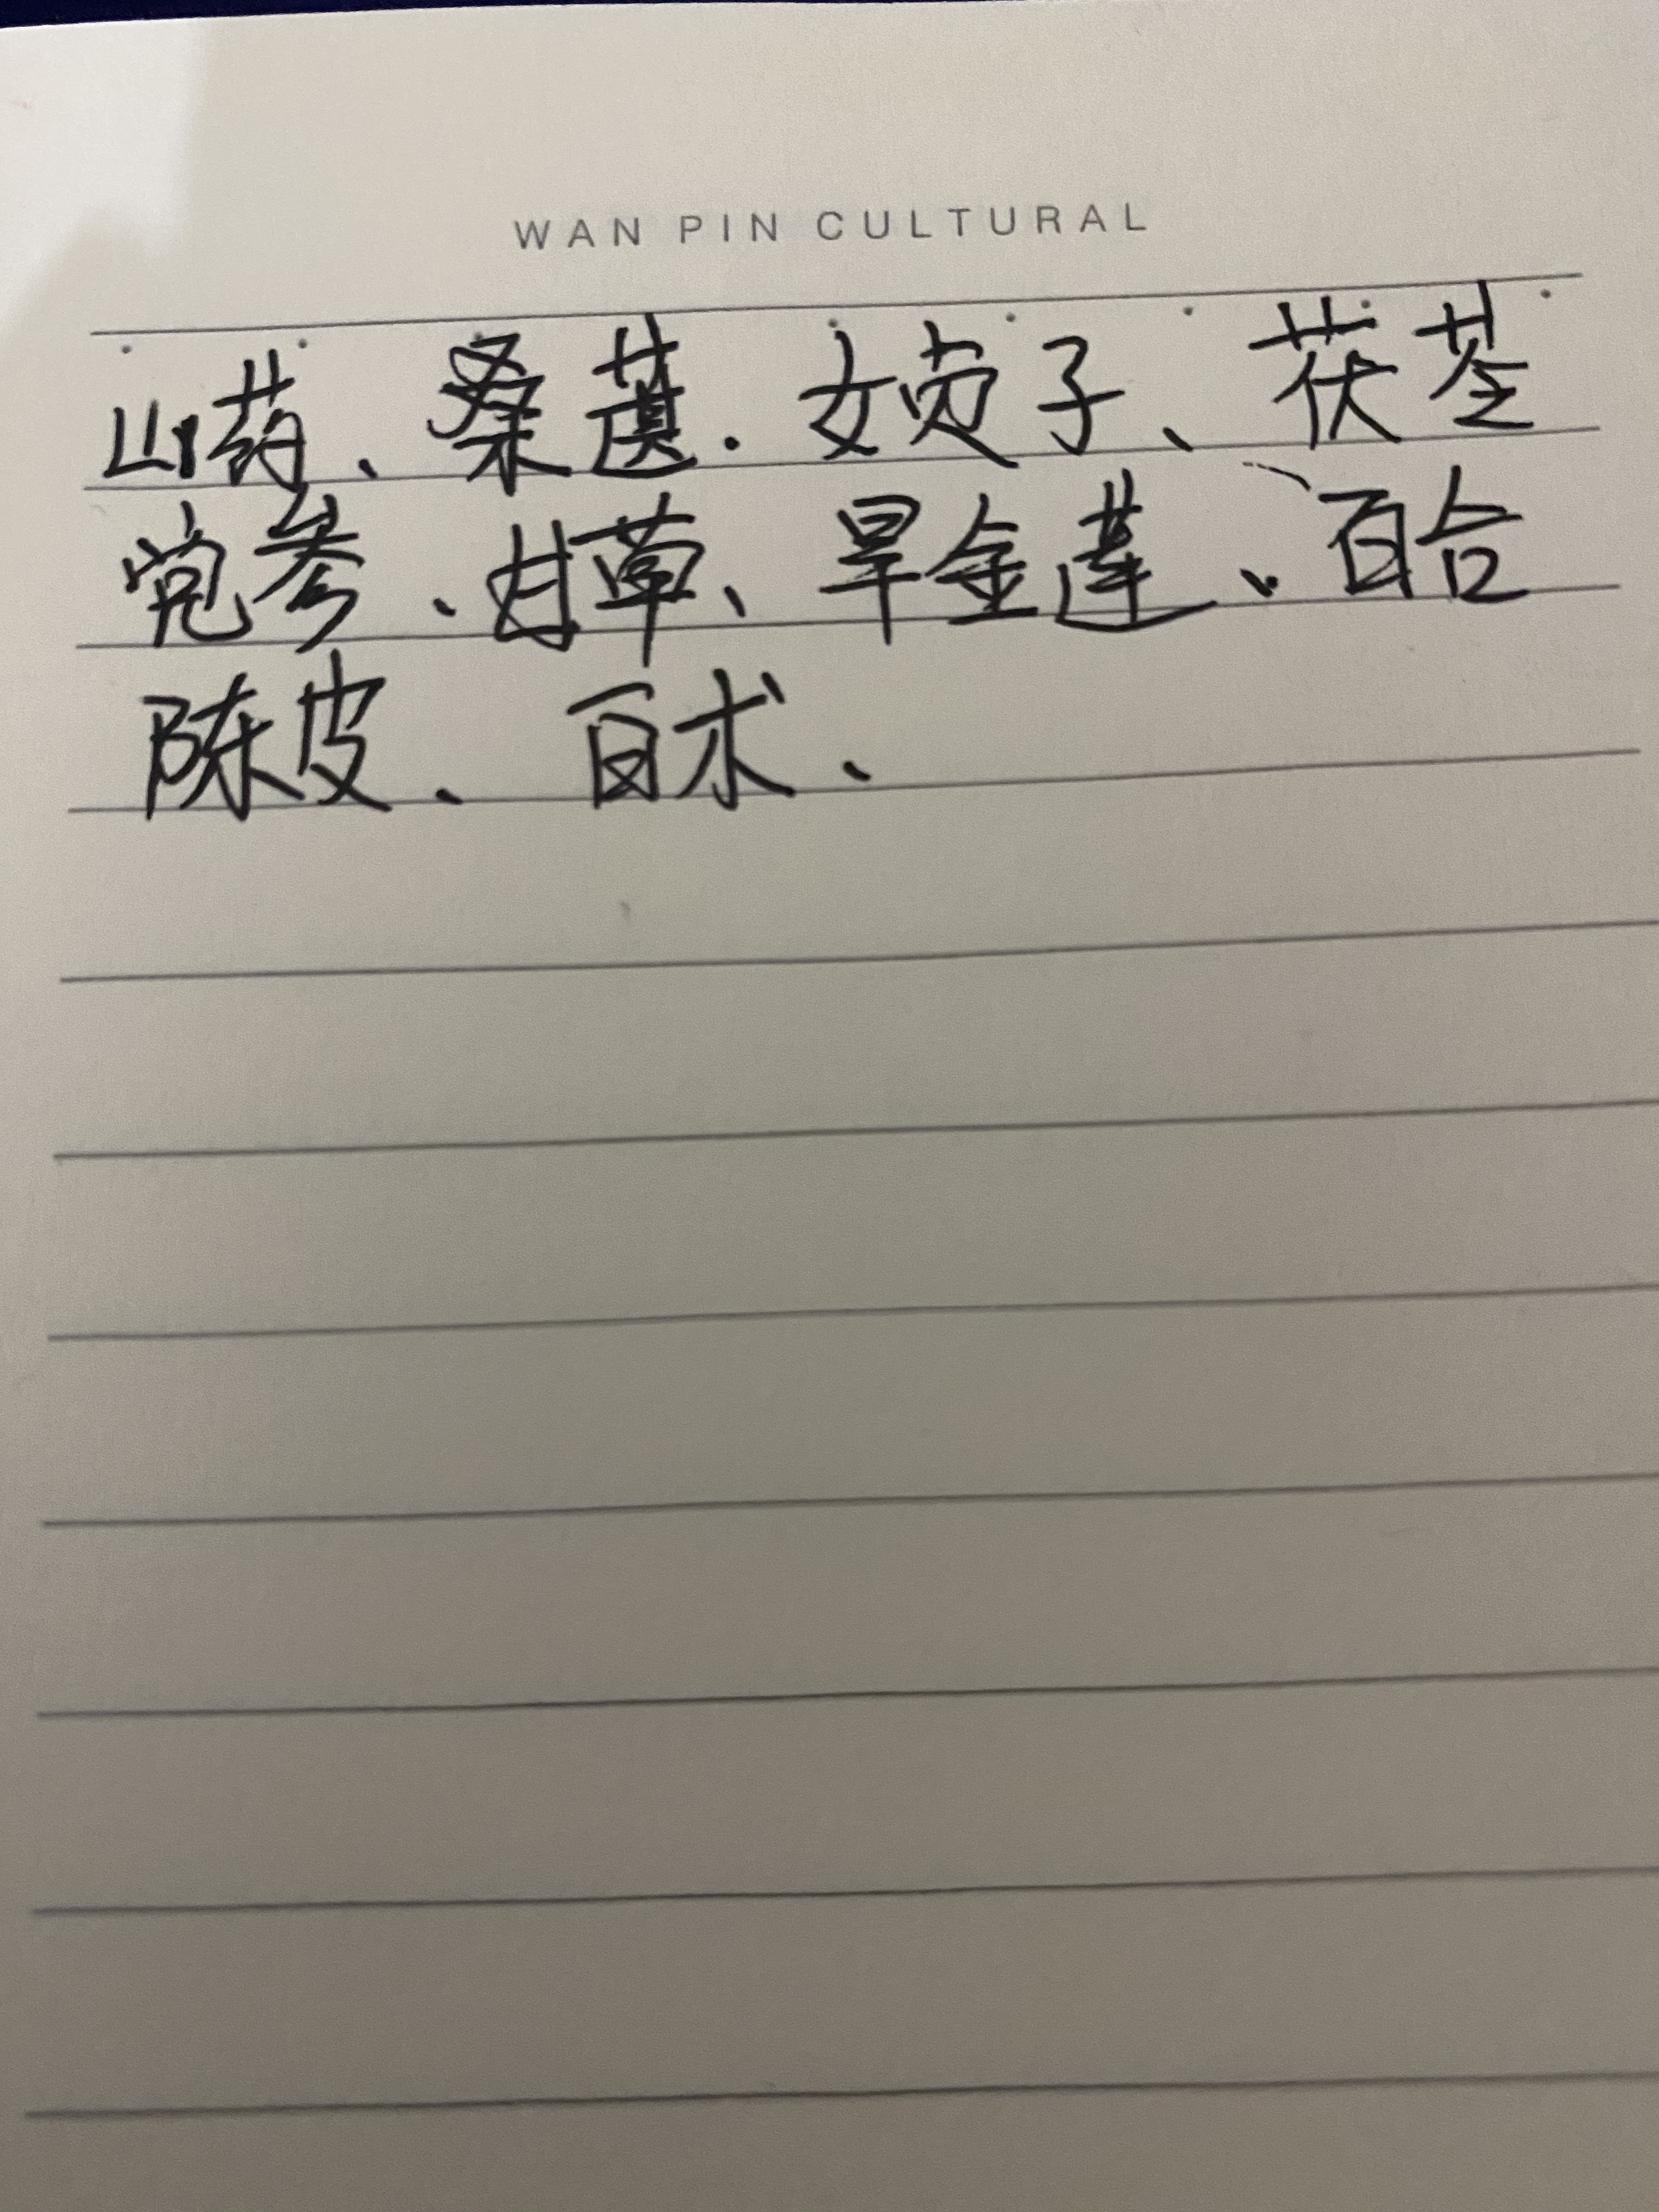 WAN PIN CULTURAL
山药、桑葚.女贞子、茯苓
党参、甘草、旱金莲、百合
陈皮、百术、